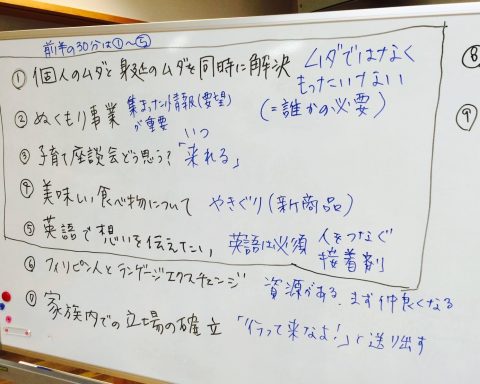 前半の30分は①～⑤
① 個人のムダと身近のムダを同時に解決 ムダではなく
もったいない
(=誰かの必要)
② ぬくもり事業 集まったり情報(要望)
が重要
いつ
③ 子育て座談会どう思う?「来れる」
④ 美味しい食べ物について やきぐり(新商品)
⑤ 英語で想いを伝えたい 英語は必須 人をつなぐ
接着剤
⑥ フィリピン人とランゲージエクスチェンジ
資源がある まず仲良くなる
⑦ 家族内での立場の確立 「行って来なよ!」と送り出す
⑧
⑨